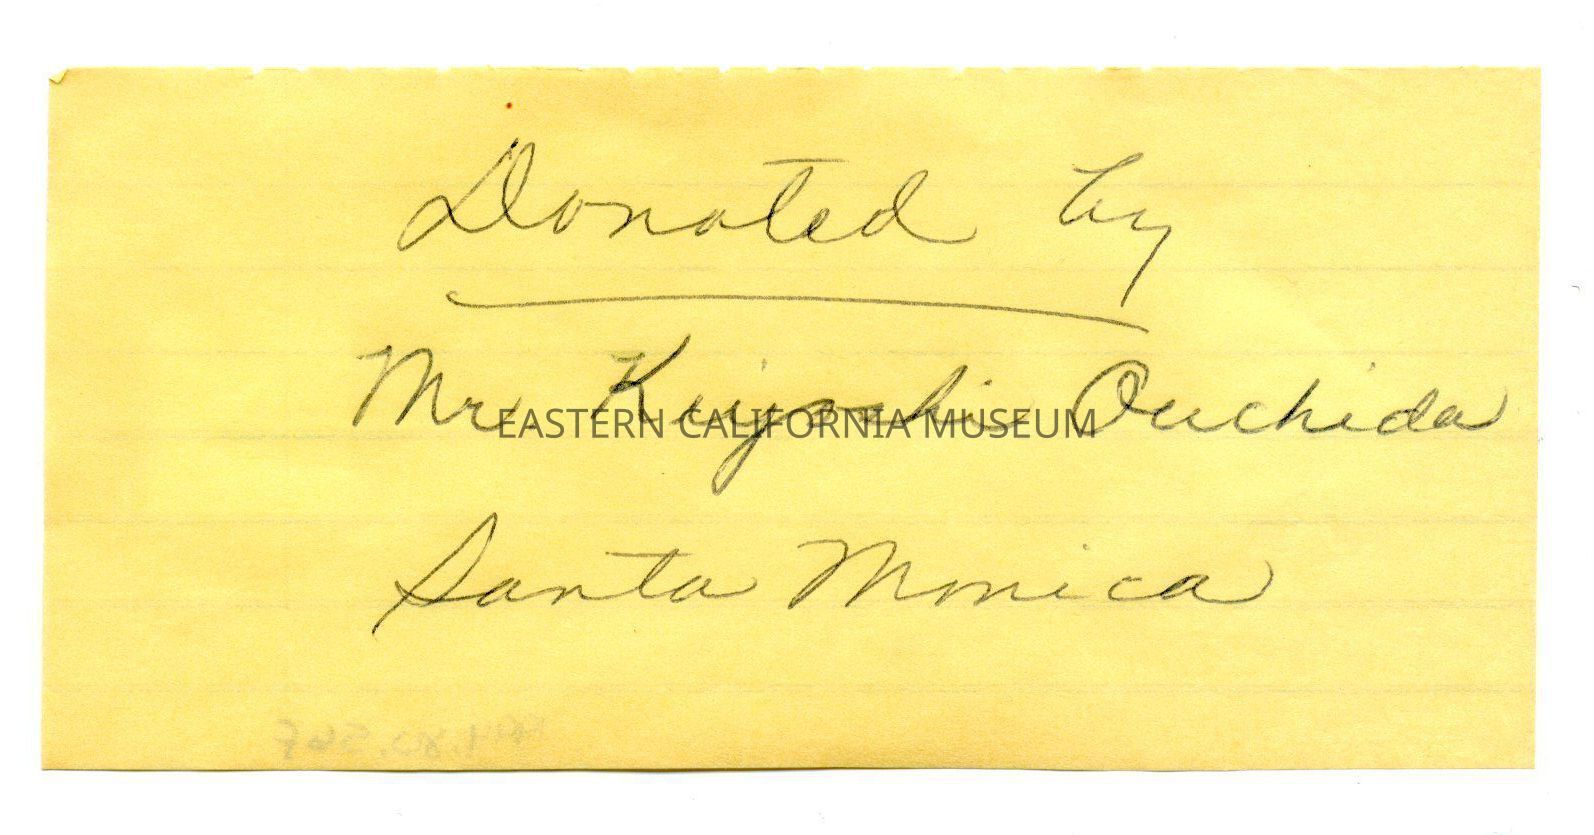 Donated by
Mr Kiyoshi Ouchida
EASTERN CALIFORNIA MUSEUM
Santa Monica